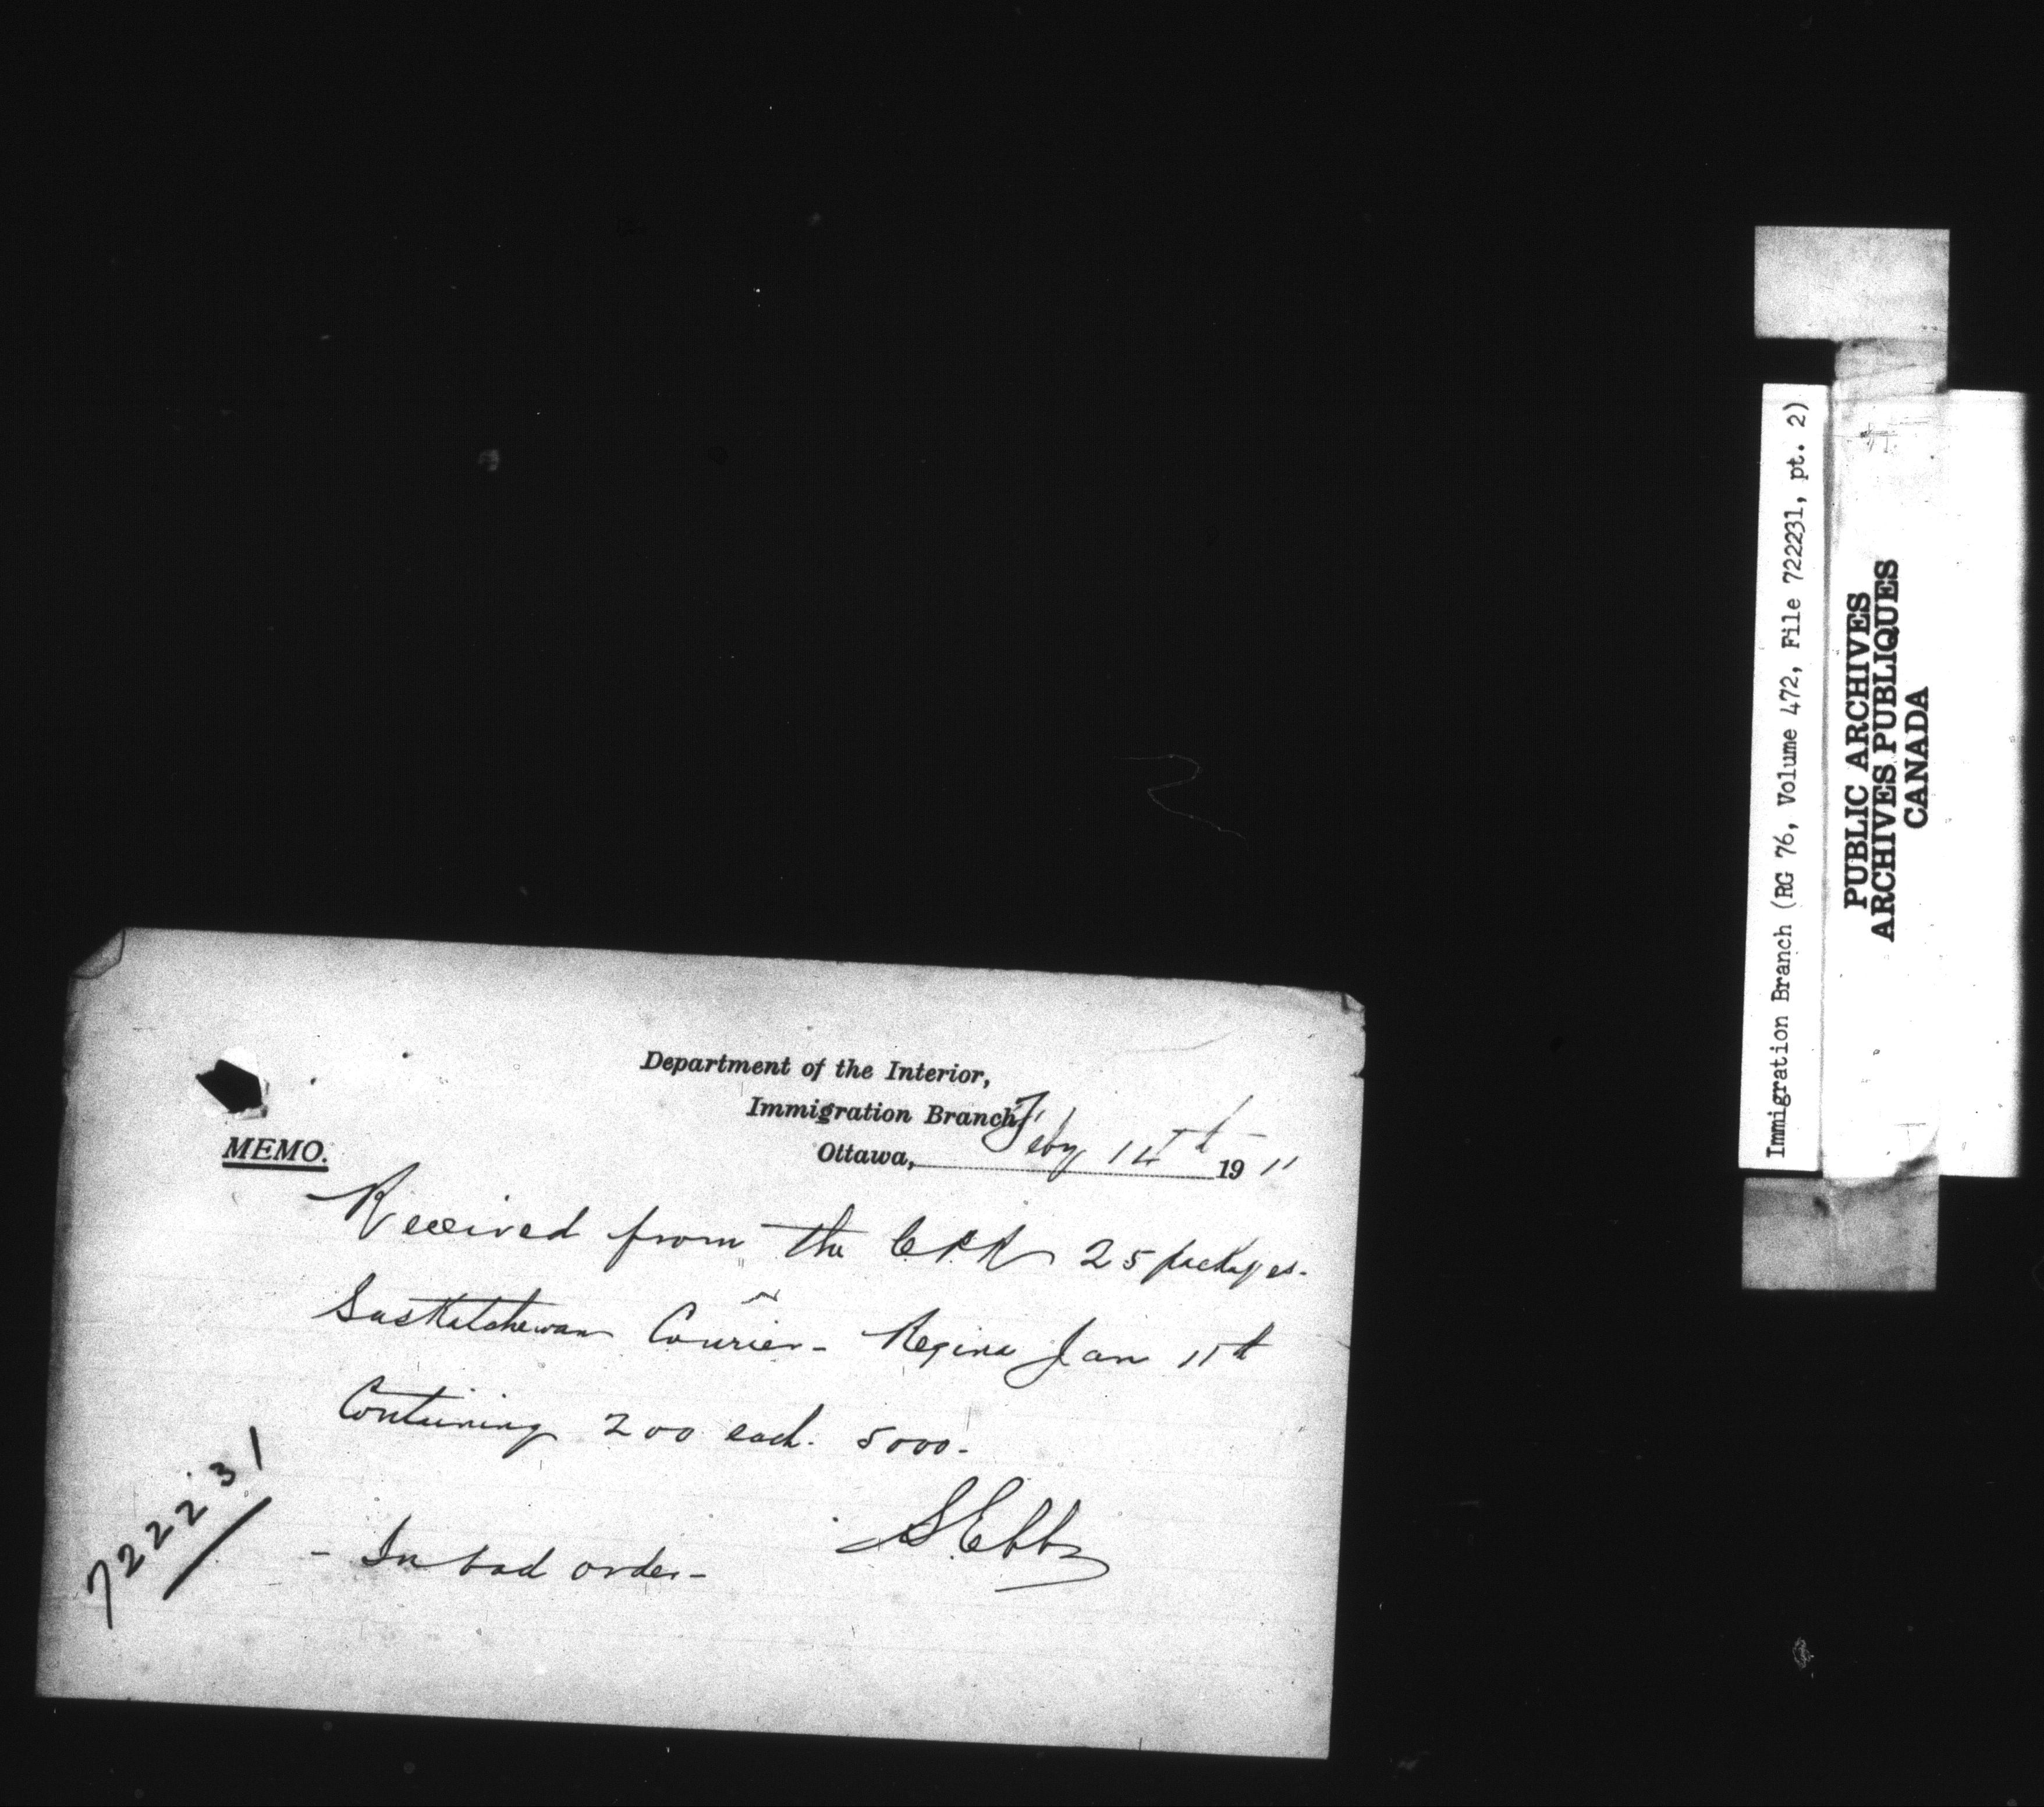 Department of the Interior,
Immigration Branch,
MEMO.
Ottawa, Feby 14th 1911
Received from the C.P.R 25 packages.
Saskatchewan Courier - Regina Jan 11th
Containing 200 each. 5000.
- In bad order -
S. Ebbs
722231
Immigration Branch (RG 76, Volume 472, File 722231, pt. 2)
PUBLIC ARCHIVES
ARCHIVES PUBLIQUES
CANADA